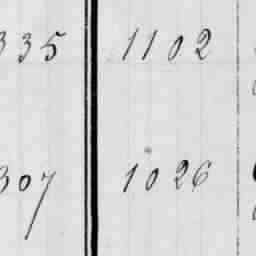 335 1102
307 1026